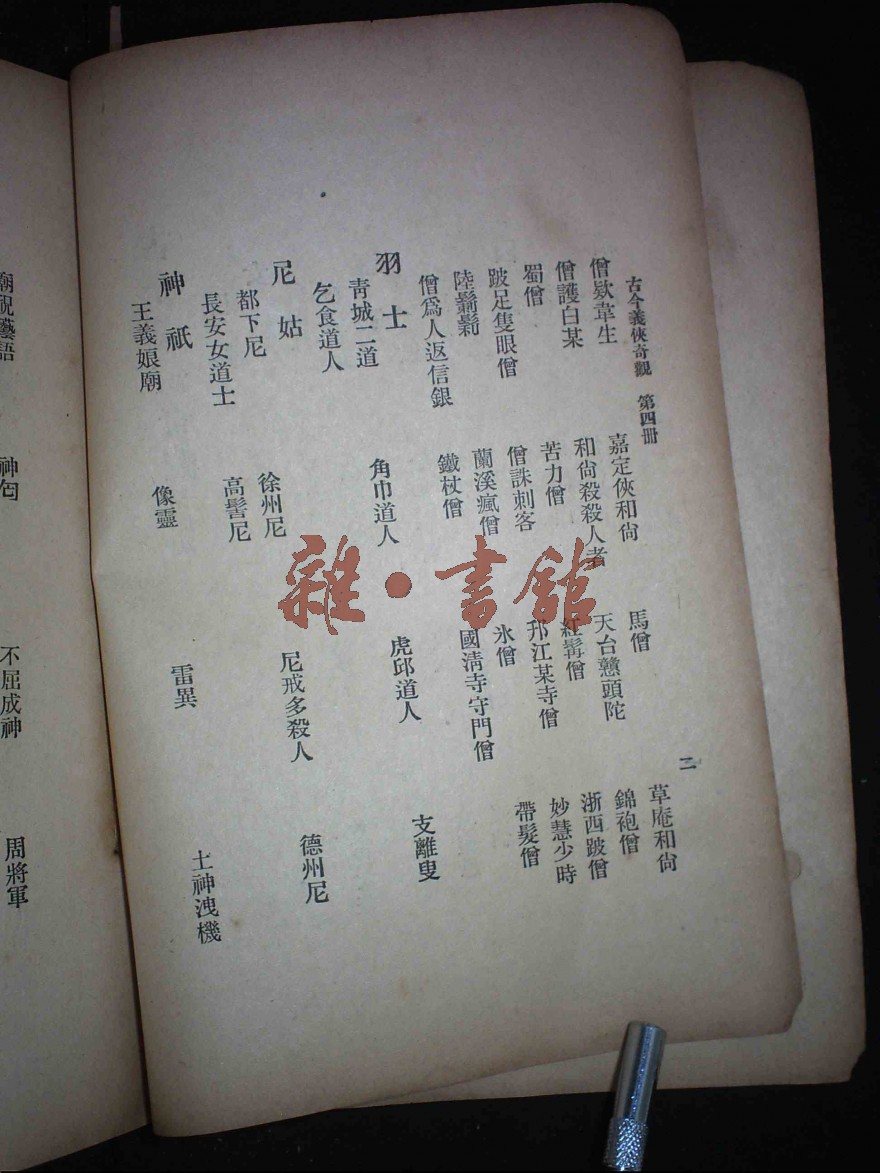 古今義俠奇觀 第四册 二
僧欵韋生 嘉定俠和尙 馬僧 草庵和尙
僧護白某 和尙殺殺人者 天台戇頭陀 錦袍僧
蜀僧 苦力僧 紅髯僧 浙西跛僧
跛足隻眼僧 僧誅刺客 邗江某寺僧 妙慧少時
陸 蘭溪瘋僧 氷僧 帶髮僧
僧爲人返信銀 鐵杖僧 國淸寺守門僧
羽士
靑城二道 角巾道人 虎邱道人 支離叟
乞食道人
尼姑
都下尼 徐州尼 尼戒多殺人 德州尼
長安女道士 高髻尼
神祇
王義娘廟 像靈 雷異 土神洩機
廟祝藝語 神匄 不屈成神 周將軍
雜·書館